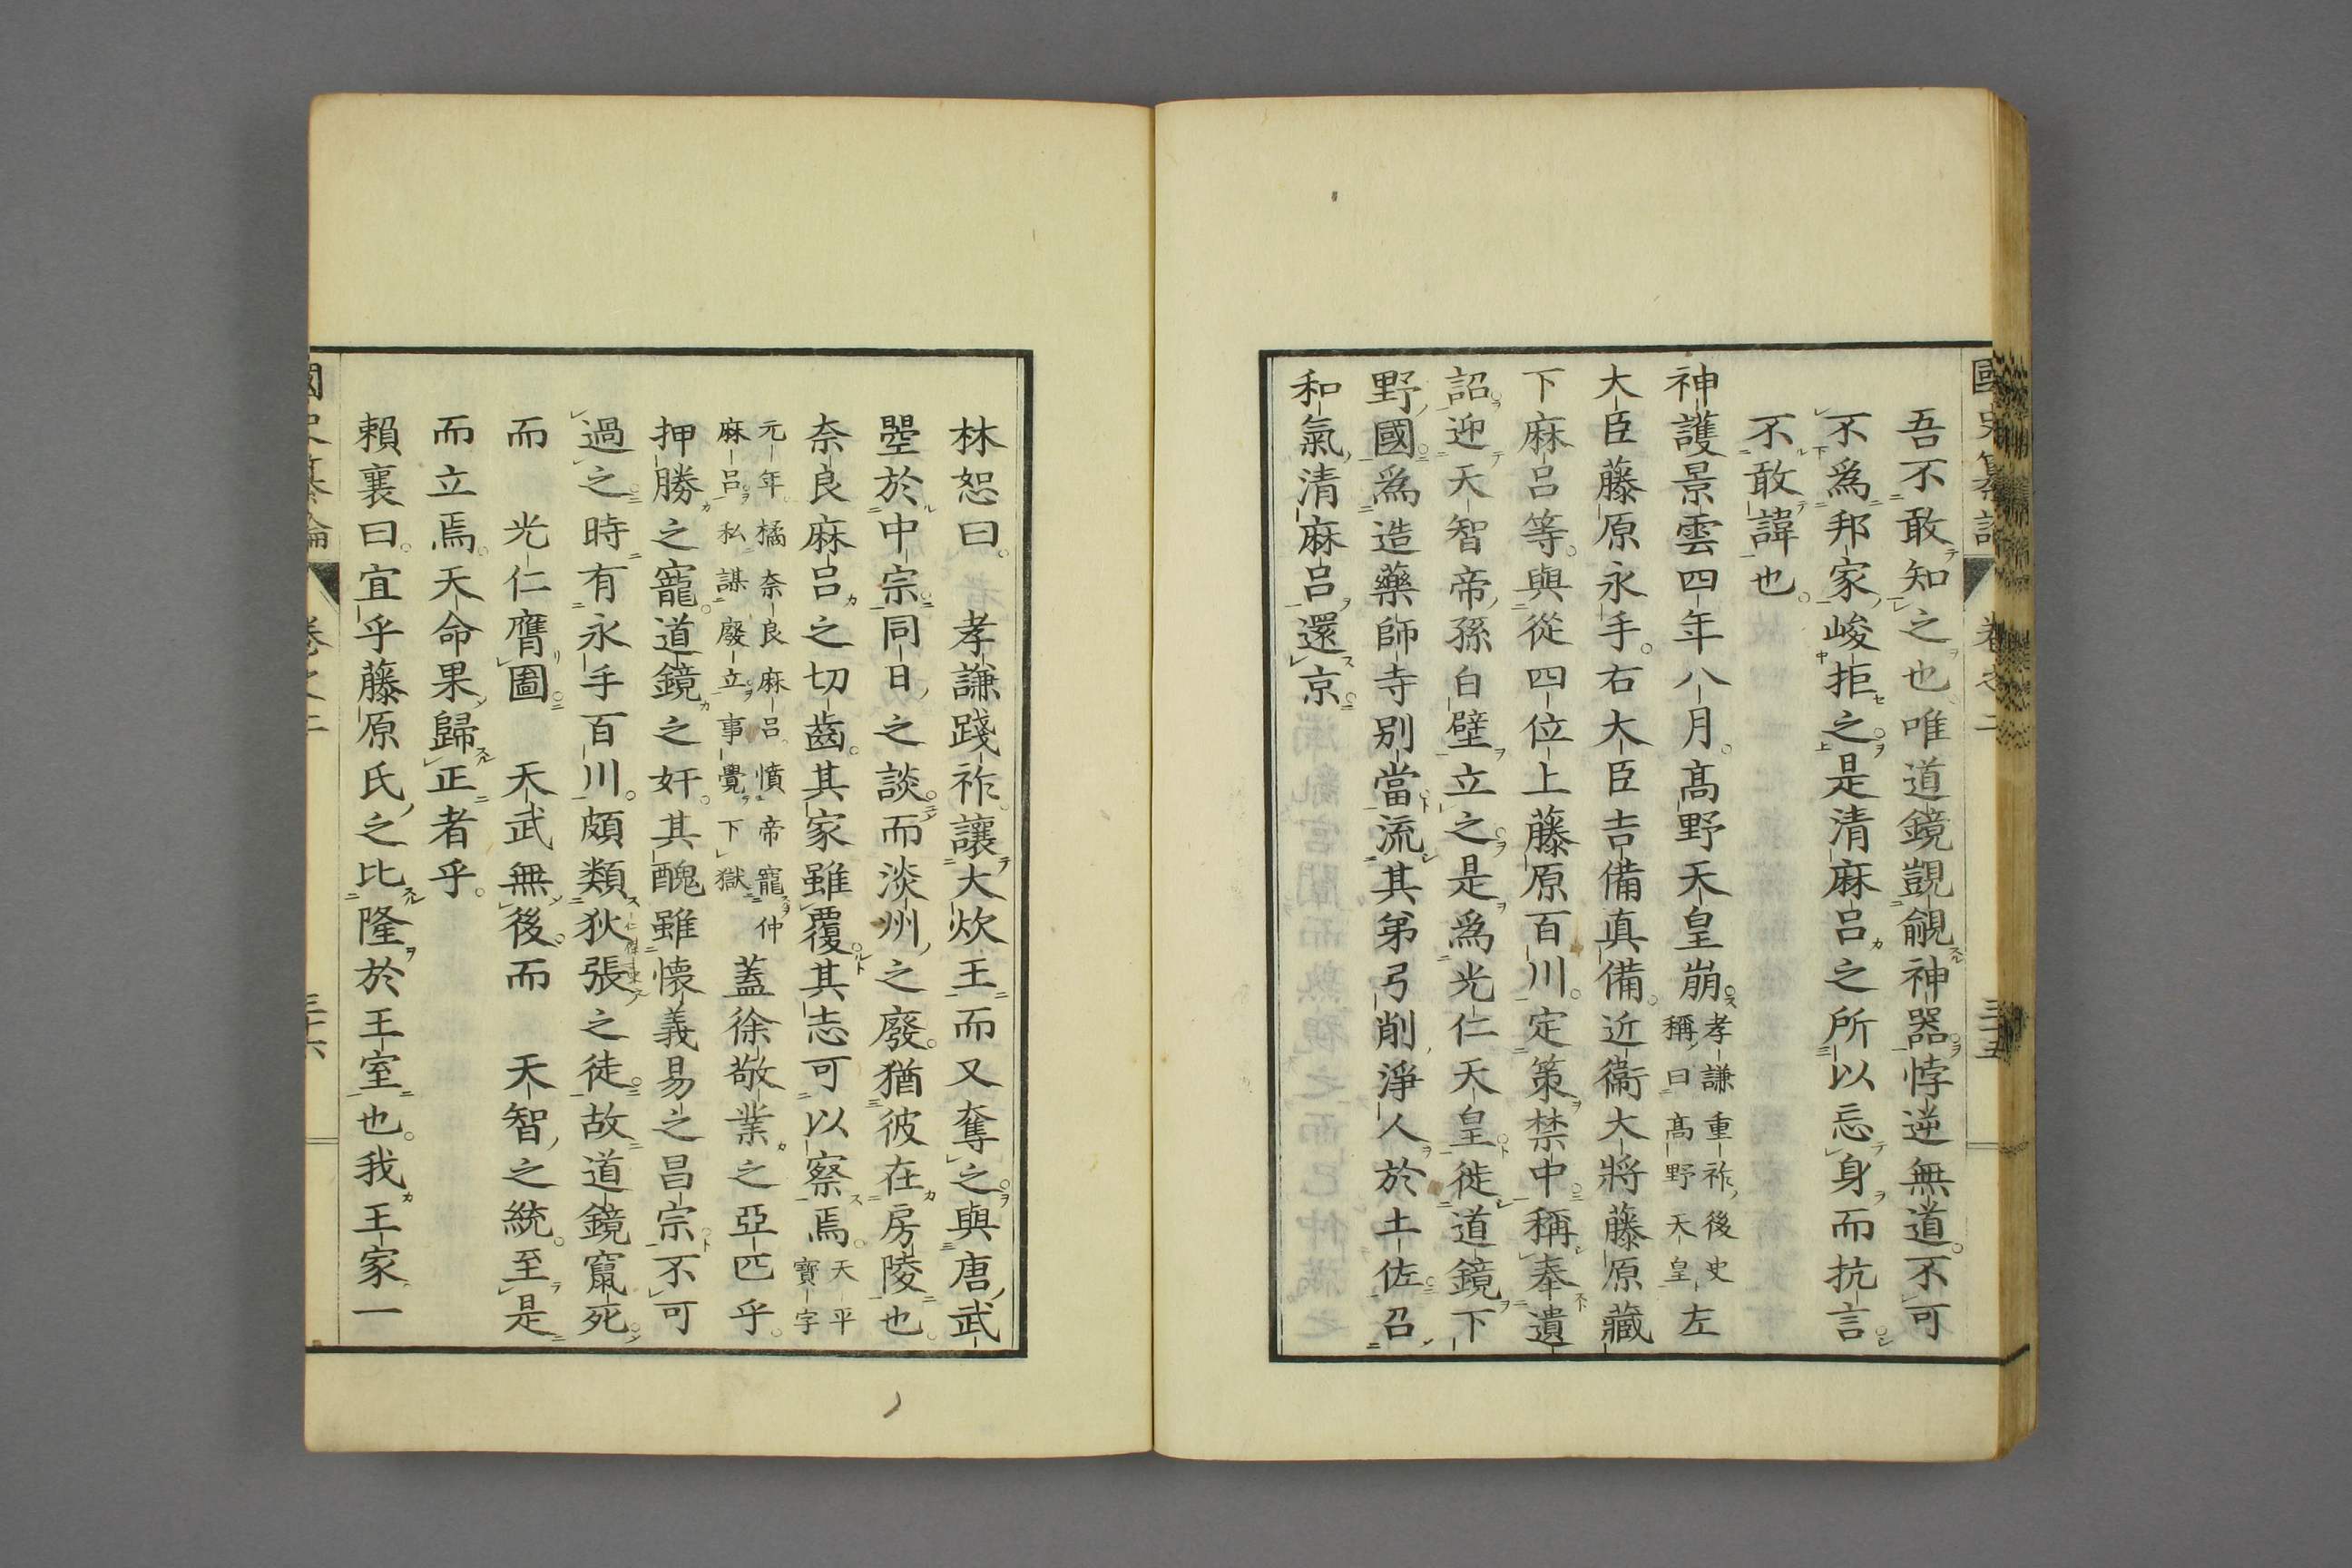 國史纂論 卷之二 三十五
吾不敢知之也唯道鏡覬覦神器悖逆無道。不可
不爲邦家峻拒之是清麻呂之所以忘身而抗言
不敢諱也。
神護景雲四年八月。髙野天皇崩。孝謙重祚後史稱曰髙野天皇左
大臣藤原永手。右大臣吉備真備。近衞大將藤原藏
下麻呂等。與從四位上藤原百川。定策禁中稱奉遺
詔迎天智帝孫白壁立之是爲光仁天皇徙道鏡下
野國爲造藥師寺別當流其弟弓削淨人於土佐召
和氣清麻呂還京
林恕曰。孝謙踐祚。讓大炊王而又奪之與唐武
曌於中宗同日之談。而淡州之廢。猶彼在房陵也。
奈良麻呂之切齒。其家雖覆其志可以察焉。天平寶字
元年。橘奈良麻呂。憤帝寵仲麻呂私謀廢立。事覺下獄蓋徐敬業之亞匹乎。
押勝之寵。道鏡之奸。其醜雖懷義易之昌宗不可
過之時有永手百川。頗類狄仁傑張柬之之徒。故道鏡竄死。
而光仁膺圖天武無後。而天智之統。至是
而立焉。天命果歸正者乎。
賴襄曰。宜乎藤原氏之比隆於王室也。我王家一
國史纂論 卷之二 三十六